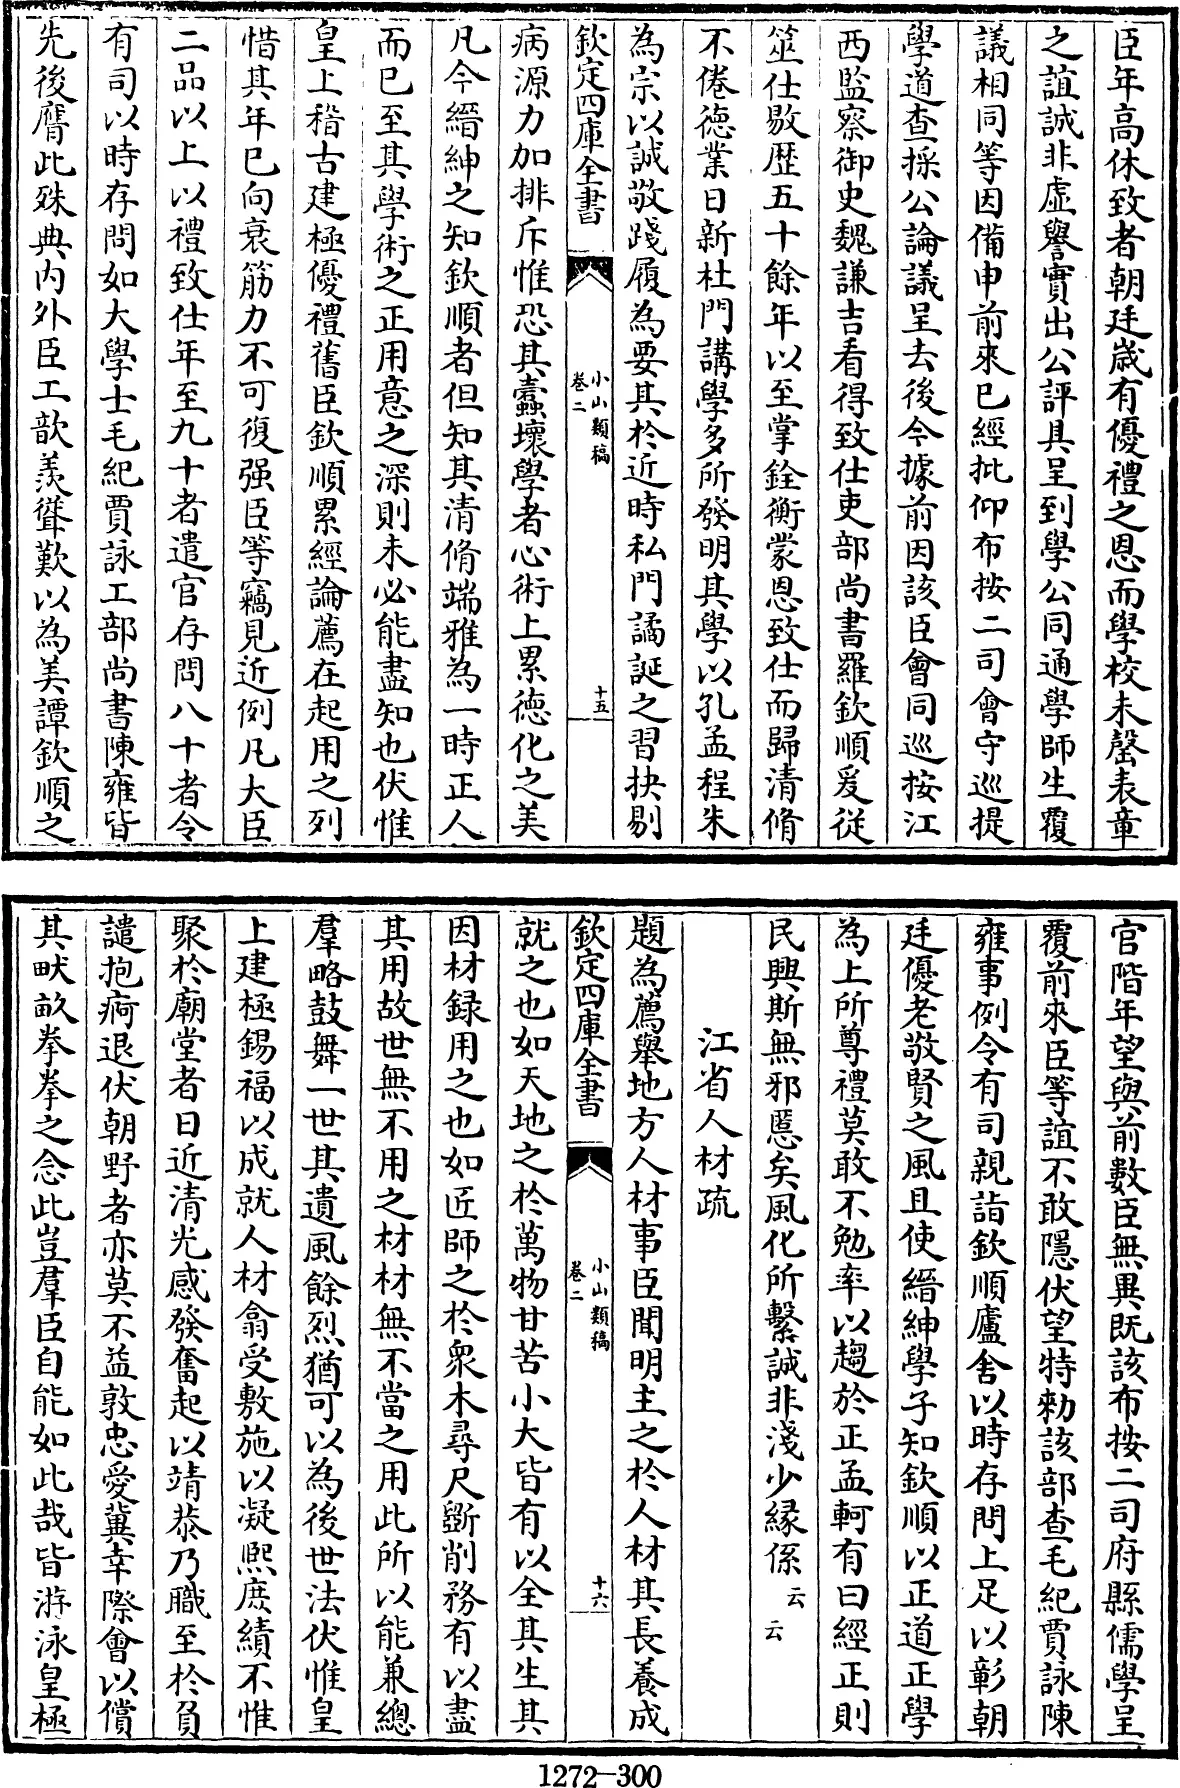 臣年高休致者朝廷歲有優禮之恩而學校未罄表章
之誼誠非虛譽實出公評具呈到學公同通學師生覆
議相同等因備申前來已經批仰布按二司會守巡提
學道查採公論議呈去後今據前因該臣會同巡按江
西監察御史魏謙吉看得致仕吏部尚書羅欽順爰從
筮仕敭歷五十餘年以至掌銓衡蒙恩致仕而歸清脩
不倦德業日新杜門講學多所發明其學以孔孟程朱
為宗以誠敬踐履為要其於近時私門譎誕之習抉剔
欽定四庫全書
小山類稿
卷二
十五
病源力加排斥惟恐其蠧壞學者心術上累德化之美
凡今縉紳之知欽順者但知其清脩端雅為一時正人
而已至其學術之正用意之深則未必能盡知也伏惟
皇上稽古建極優禮舊臣欽順累經論薦在起用之列
惜其年已向衰筋力不可復强臣等竊見近例凡大臣
二品以上以禮致仕年至九十者遣官存問八十者令
有司以時存問如大學士毛紀賈詠工部尚書陳雍皆
先後膺此殊典内外臣工歆羨聳歎以為美譚欽順之
官階年望與前數臣無異既該布按二司府縣儒學呈
覆前來臣等誼不敢隱伏望特勑該部查毛紀賈詠陳
雍事例令有司親詣欽順廬舍以時存問上足以彰朝
廷優老敬賢之風且使縉紳學子知欽順以正道正學
為上所尊禮莫敢不勉率以趨於正孟軻有曰經正則
民興斯無邪慝矣風化所繫誠非淺少縁係云云
江省人材疏
題為薦舉地方人材事臣聞明主之於人材其長養成
欽定四庫全書
小山類稿
卷二
十六
就之也如天地之於萬物甘苦小大皆有以全其生其
因材録用之也如匠師之於衆木尋尺斵削務有以盡
其用故世無不用之材材無不當之用此所以能兼總
羣略鼓舞一世其遺風餘烈猶可以為後世法伏惟皇
上建極錫福以成就人材翕受敷施以凝熙庶績不惟
聚於廟堂者日近清光感發奮起以靖恭乃職至於負
譴抱痾退伏朝野者亦莫不益敦忠愛冀幸際會以償
其畎畝拳拳之念此豈羣臣自能如此哉皆游泳皇極
1272—300